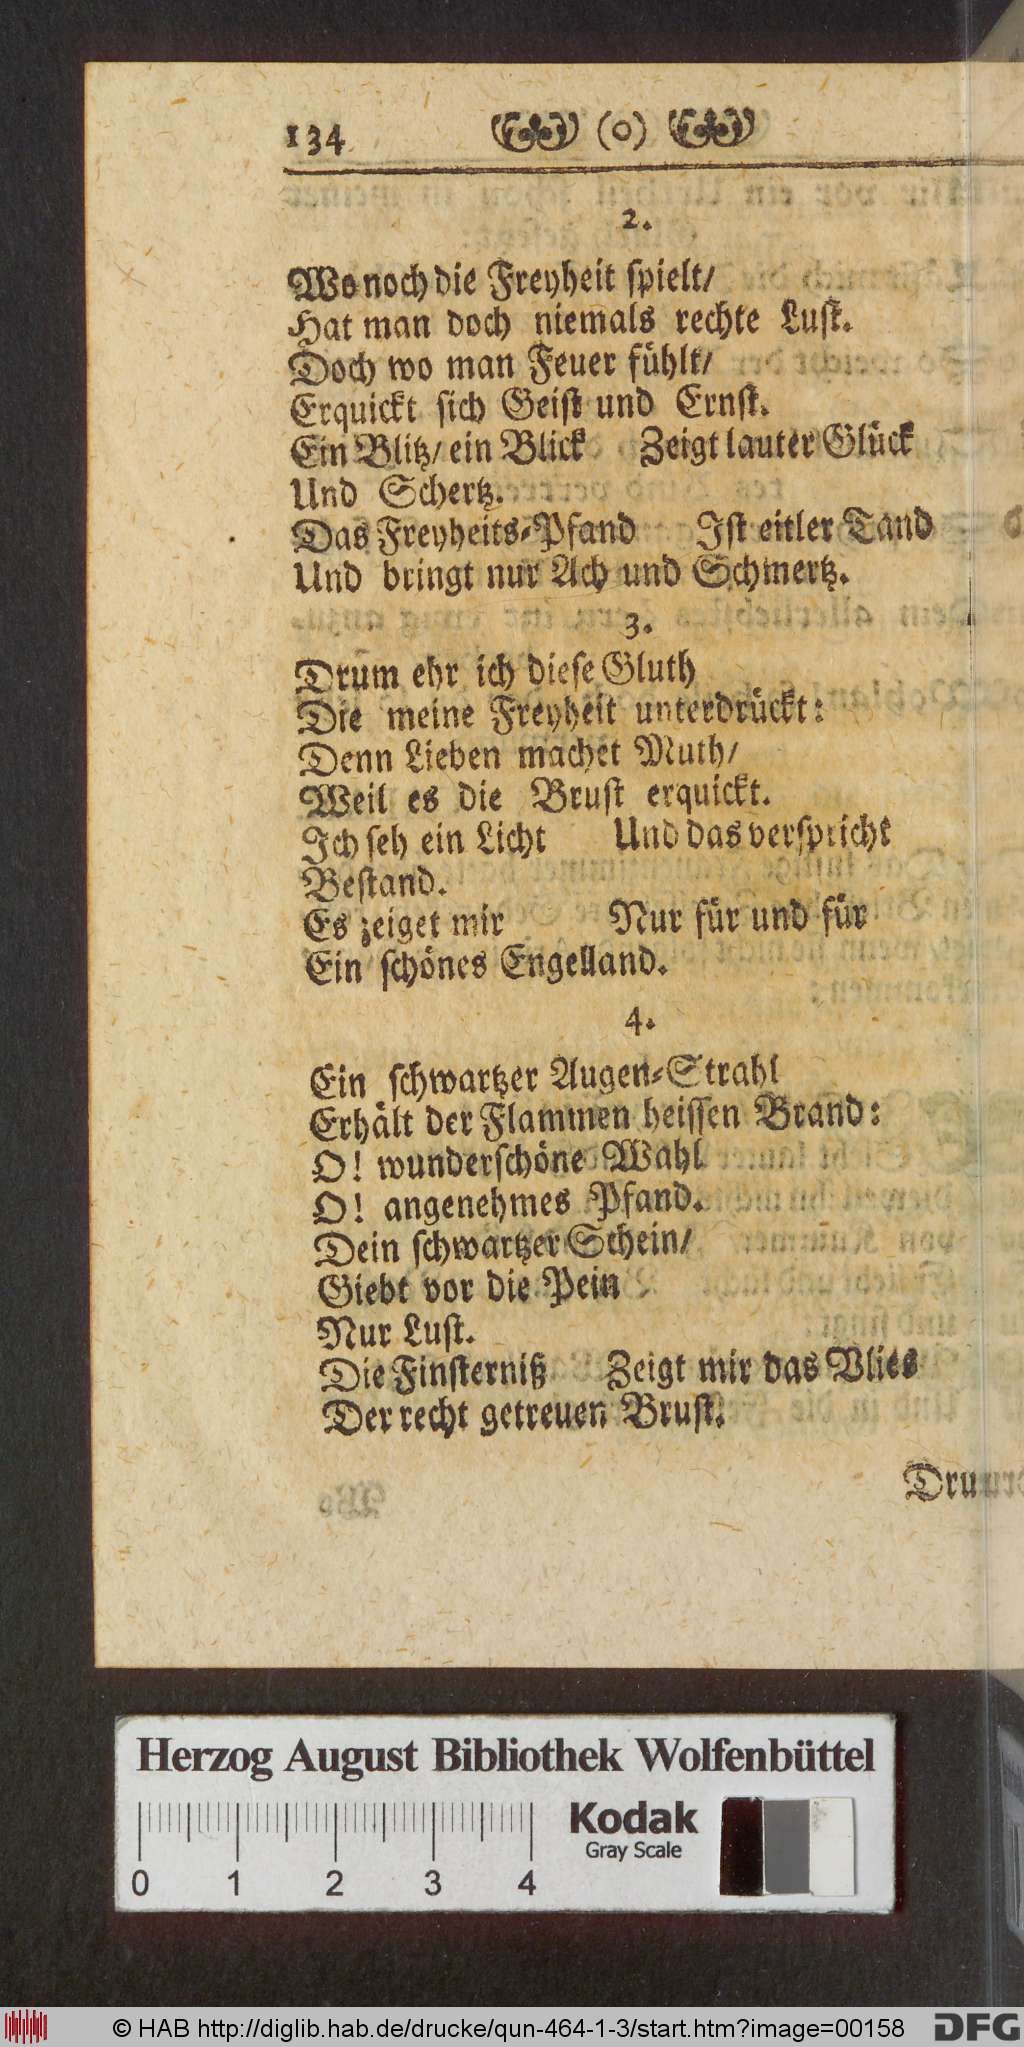 134 (o)
2.
Wo noch die Freyheit spielt/
Hat man doch niemals rechte Lust.
Doch wo man Feuer fühlt/
Erquickt sich Geist und Ernst.
Ein Blitz/ ein Blick Zeigt lauter Glück
Und Schertz.
Das Freyheits-Pfand Ist eitler Tand
Und bringt nur Ach und Schmertz.
3.
Drum ehr ich diese Gluth
Die meine Freyheit unterdrückt:
Denn Lieben machet Muth/
Weil es die Brust erquickt.
Ich seh ein Licht Und das verspricht
Bestand.
Es zeiget mir Nur für und für
Ein schönes Engelland.
4.
Ein schwartzer Augen-Strahl
Erhält der Flammen heissen Brand:
O! wunderschöne Wahl
O! angenehmes Pfand.
Dein schwartzer Schein/
Giebt vor die Pein
Nur Lust.
Die Finsterniß Zeigt mir das Vlies
Der recht getreuen Brust.
Drum
Herzog August Bibliothek Wolfenbüttel
Kodak
Gray Scale
0 1 2 3 4
© HAB http://diglib.hab.de/drucke/qun-464-1-3/start.htm?image=00158
DFG